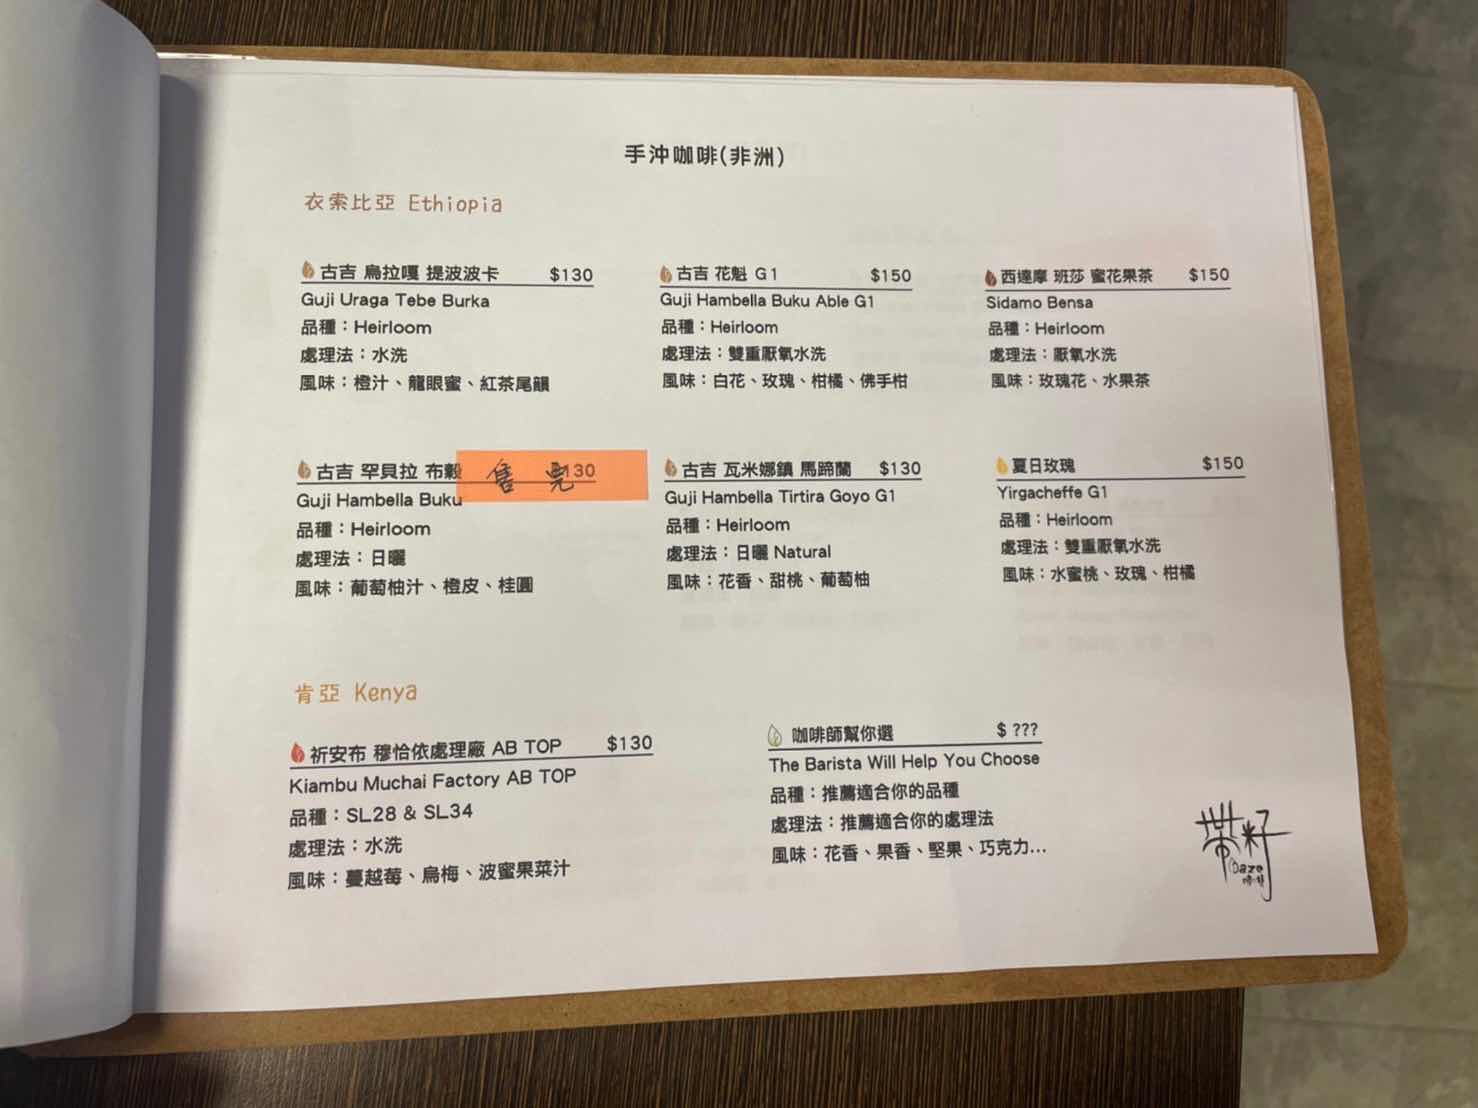 手沖咖啡(非洲)
衣索比亞 Ethiopia
古吉 烏拉嘎 提波波卡 $130
Guji Uraga Tebe Burka
品種：Heirloom
處理法：水洗
風味：橙汁、龍眼蜜、紅茶尾韻
古吉 花魁 G1 $150
Guji Hambella Buku Able G1
品種：Heirloom
處理法：雙重厭氧水洗
風味：白花、玫瑰、柑橘、佛手柑
西達摩 班莎 蜜花果茶 $150
Sidamo Bensa
品種：Heirloom
處理法：厭氧水洗
風味：玫瑰花、水果茶
古吉 罕貝拉 布穀 $130
售完
Guji Hambella Buku
品種：Heirloom
處理法：日曬
風味：葡萄柚汁、橙皮、桂圓
古吉 瓦米娜鎮 馬蹄蘭 $130
Guji Hambella Tirtira Goyo G1
品種：Heirloom
處理法：日曬 Natural
風味：花香、甜桃、葡萄柚
夏日玫瑰 $150
Yirgacheffe G1
品種：Heirloom
處理法：雙重厭氧水洗
風味：水蜜桃、玫瑰、柑橘
肯亞 Kenya
祈安布 穆恰依處理廠 AB TOP $130
Kiambu Muchai Factory AB TOP
品種：SL28 & SL34
處理法：水洗
風味：蔓越莓、烏梅、波蜜果菜汁
咖啡師幫你選 $ ???
The Barista Will Help You Choose
品種：推薦適合你的品種
處理法：推薦適合你的處理法
風味：花香、果香、堅果、巧克力...
帶籽
Daze
咖啡